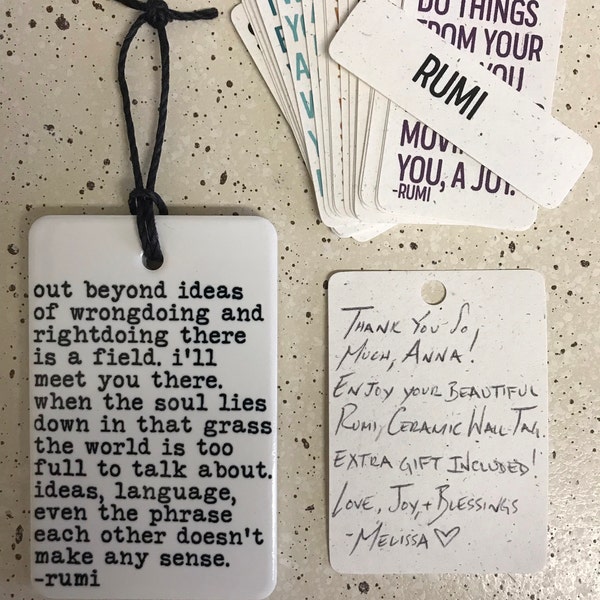 out beyond ideas
of wrongdoing and
rightdoing there
is a field. i'll
meet you there.
when the soul lies
down in that grass
the world is too
full to talk about.
ideas, language,
even the phrase
each other doesn't
make any sense.
-rumi
DO THINGS
FROM YOUR
YOU
RUMI
MOVI
YOU, A JOY.
-RUMI
THANK YOU SO
MUCH, ANNA!
ENJOY YOUR BEAUTIFUL
RUMI CERAMIC WALL TAG.
EXTRA GIFT INCLUDED!
LOVE, JOY, + BLESSINGS
-MELISSA ♡